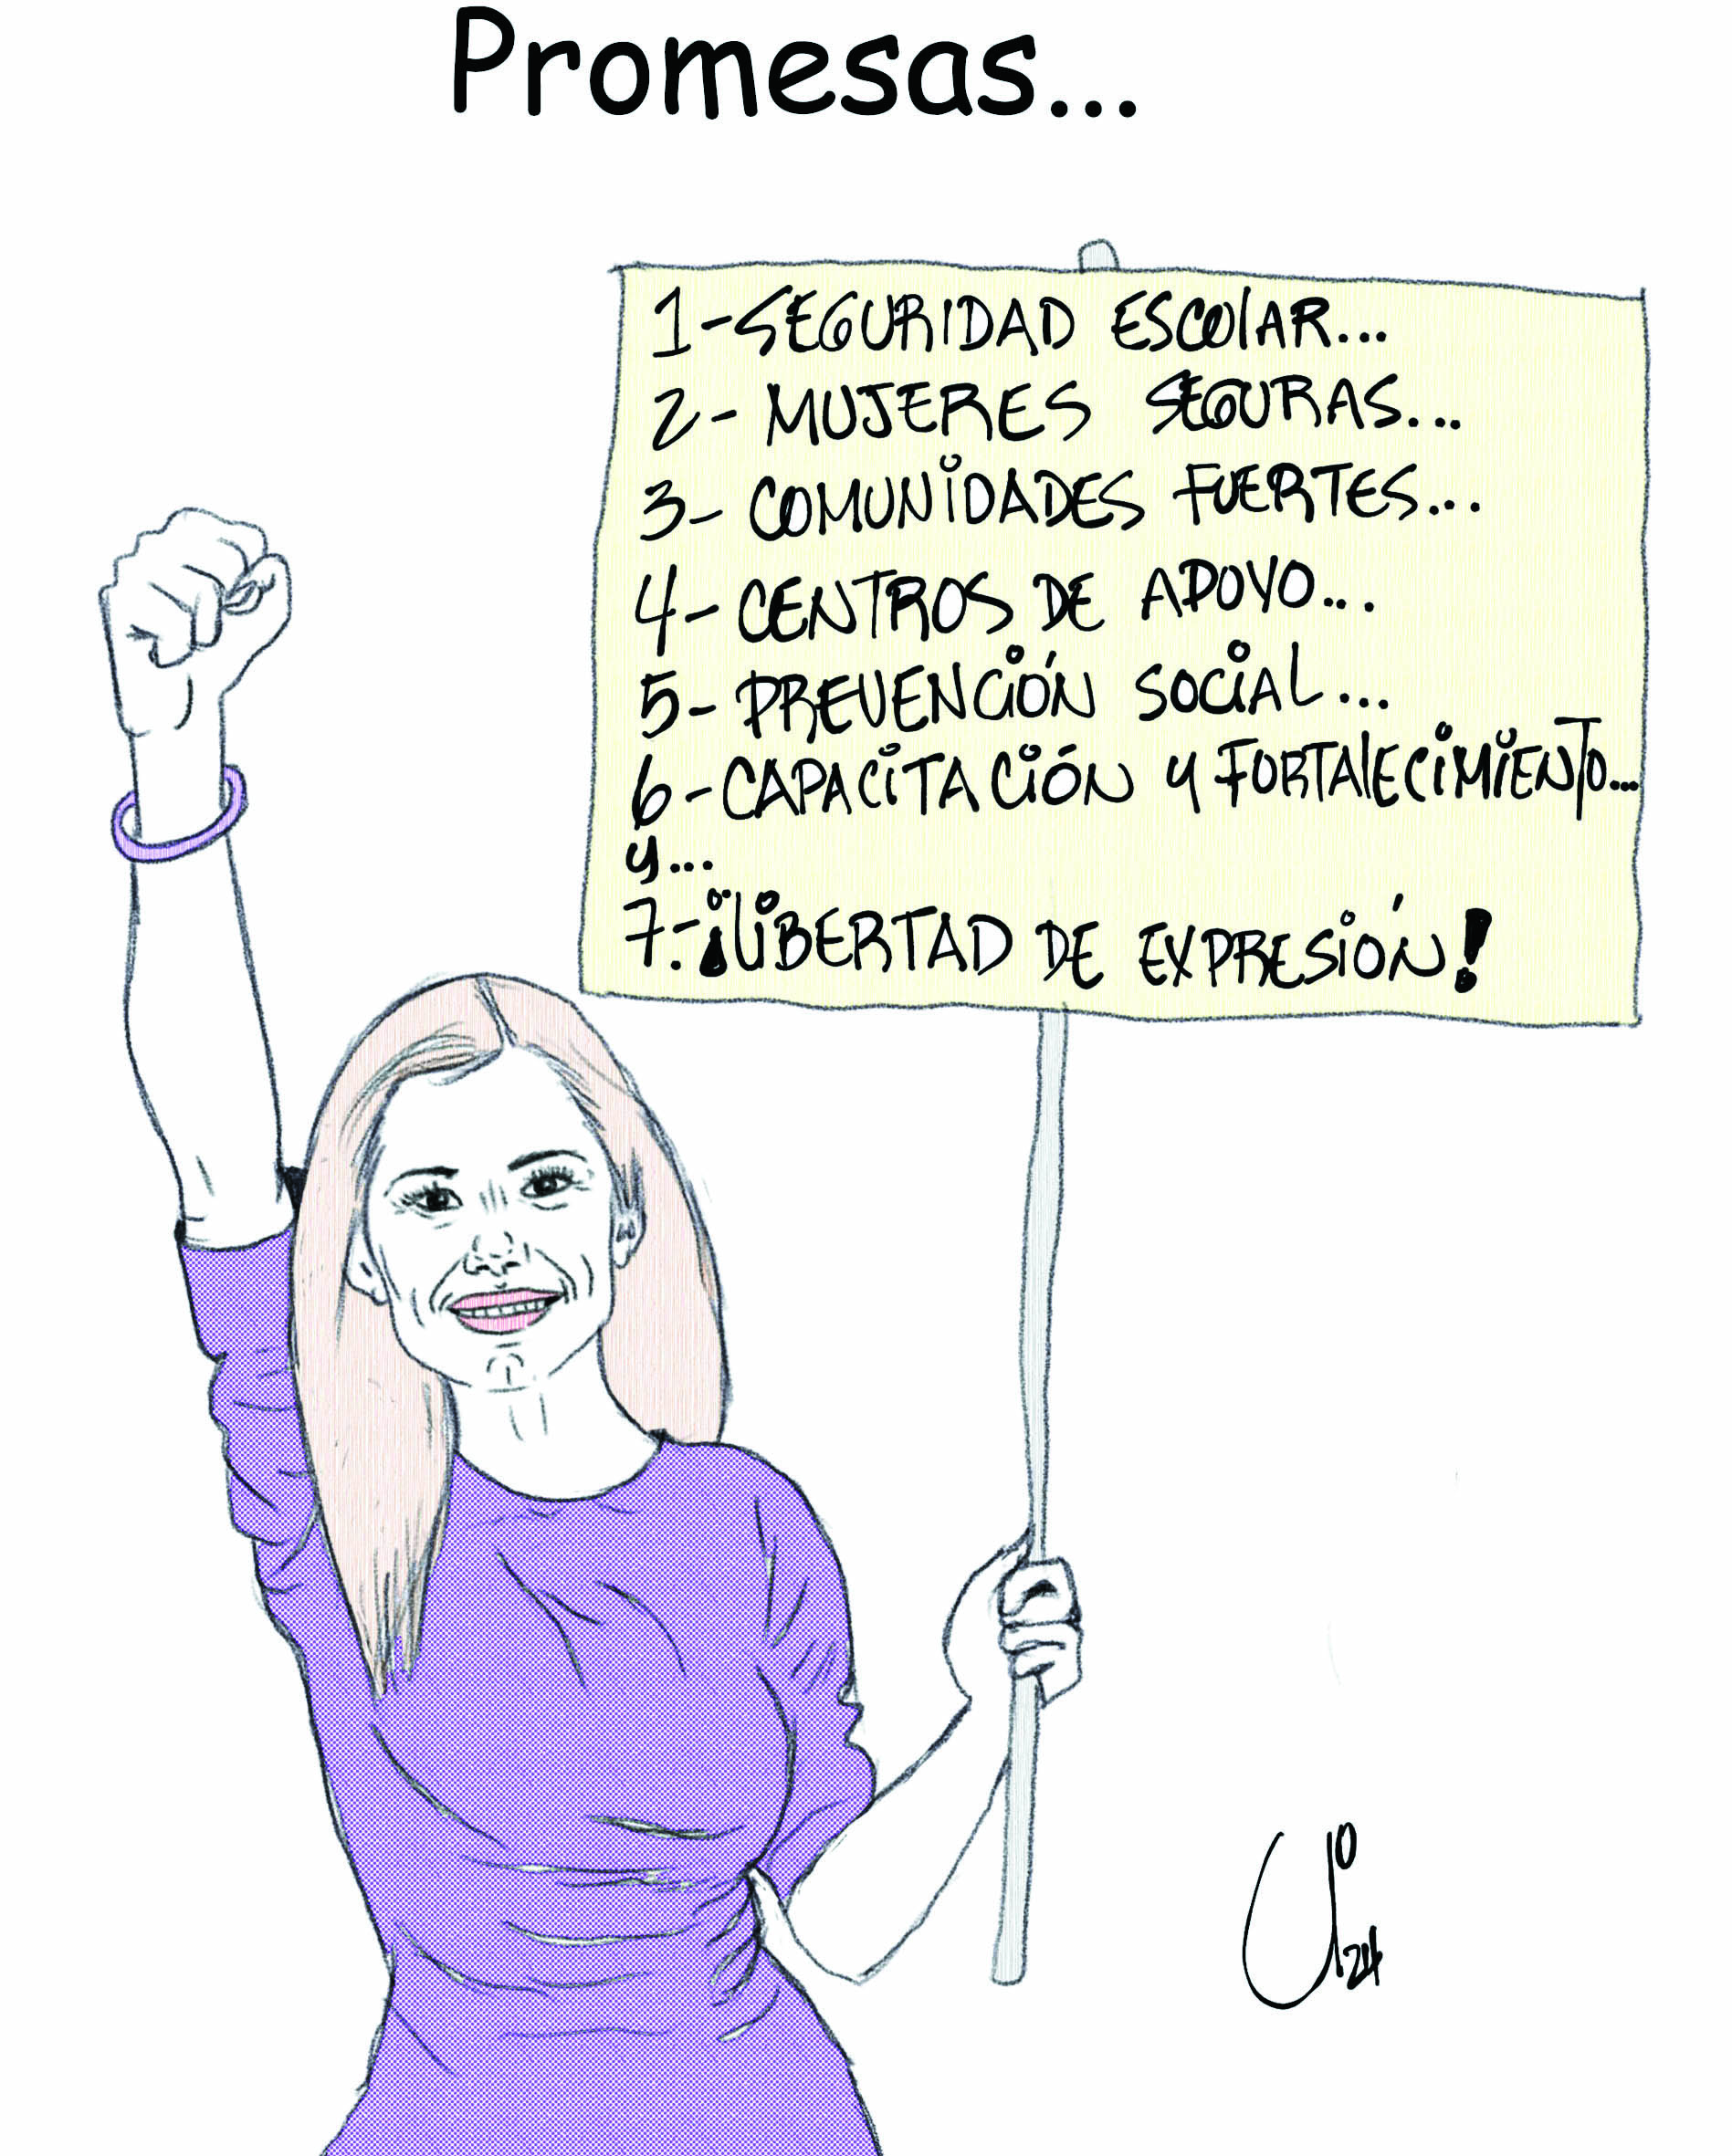 Promesas...
1-SEGURIDAD ESCOLAR...
2- MUJERES SEGURAS...
3- COMUNIDADES FUERTES...
4- CENTROS DE APOYO...
5- PREVENCIÓN SOCIAL...
6- CAPACITACIÓN Y FORTALECIMIENTO...
y...
7.-¡LIBERTAD DE EXPRESIÓN!
24